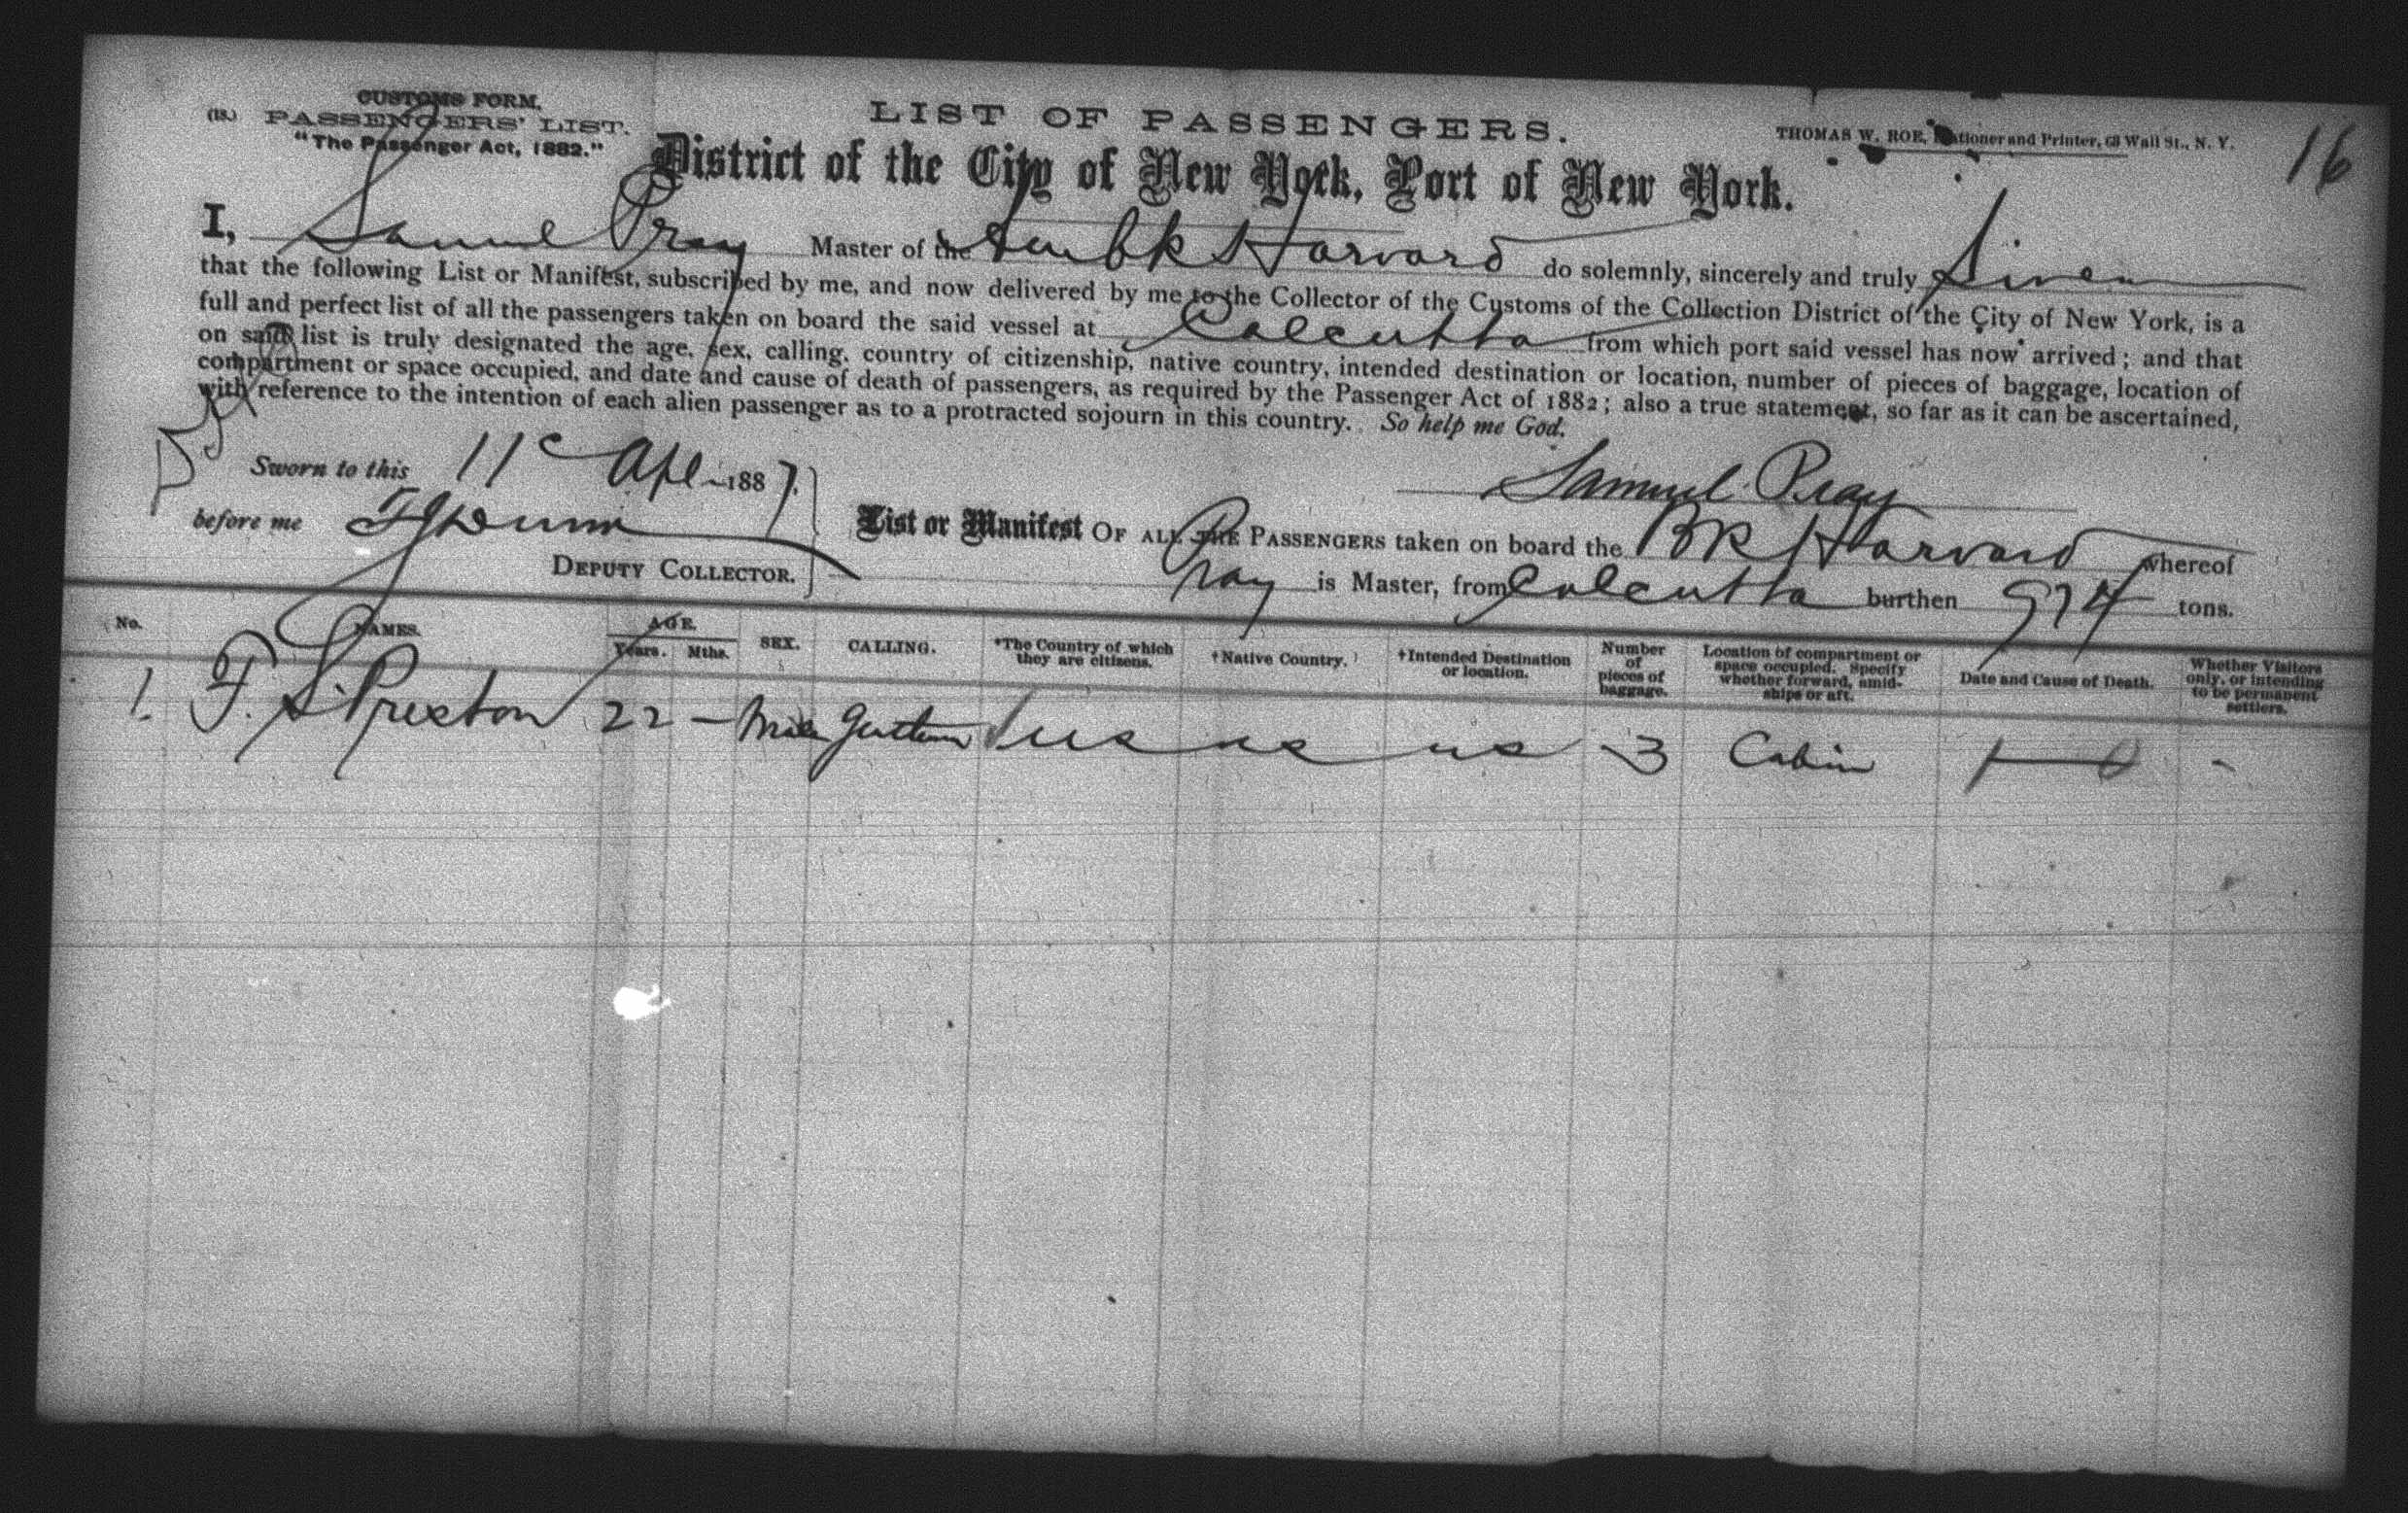 CUSTOMS FORM.
(18.) PASSENGERS' LIST.
"The Passenger Act, 1882."
LIST OF PASSENGERS.
THOMAS W. ROE, Stationer and Printer, 63 Wall St., N. Y.
16
District of the City of New York, Port of New York.
I, Samuel Pray Master of the Bk Harvard do solemnly, sincerely and truly Swear
that the following List or Manifest, subscribed by me, and now delivered by me to the Collector of the Customs of the Collection District of the City of New York, is a
full and perfect list of all the passengers taken on board the said vessel at Calcutta from which port said vessel has now arrived; and that
on said list is truly designated the age, sex, calling, country of citizenship, native country, intended destination or location, number of pieces of baggage, location of
compartment or space occupied, and date and cause of death of passengers, as required by the Passenger Act of 1882; also a true statement, so far as it can be ascertained,
with reference to the intention of each alien passenger as to a protracted sojourn in this country. So help me God.
Sworn to this 11 Apl 1887.
Samuel Pray
before me Dunn
DEPUTY COLLECTOR.
List or Manifest OF ALL THE PASSENGERS taken on board the Bk Harvard whereof
Pray is Master, from Calcutta burthen 974 tons.
No. NAMES. AGE. Years. Mths. SEX. CALLING. *The Country of which they are citizens. †Native Country. †Intended Destination or location. Number of pieces of baggage. Location of compartment or space occupied. Specify whether forward, amidships or aft. Date and Cause of Death. Whether Visitors only, or intending to be permanent settlers.
1. F. S. Preston 22 — Male us us us 3 Cabin -